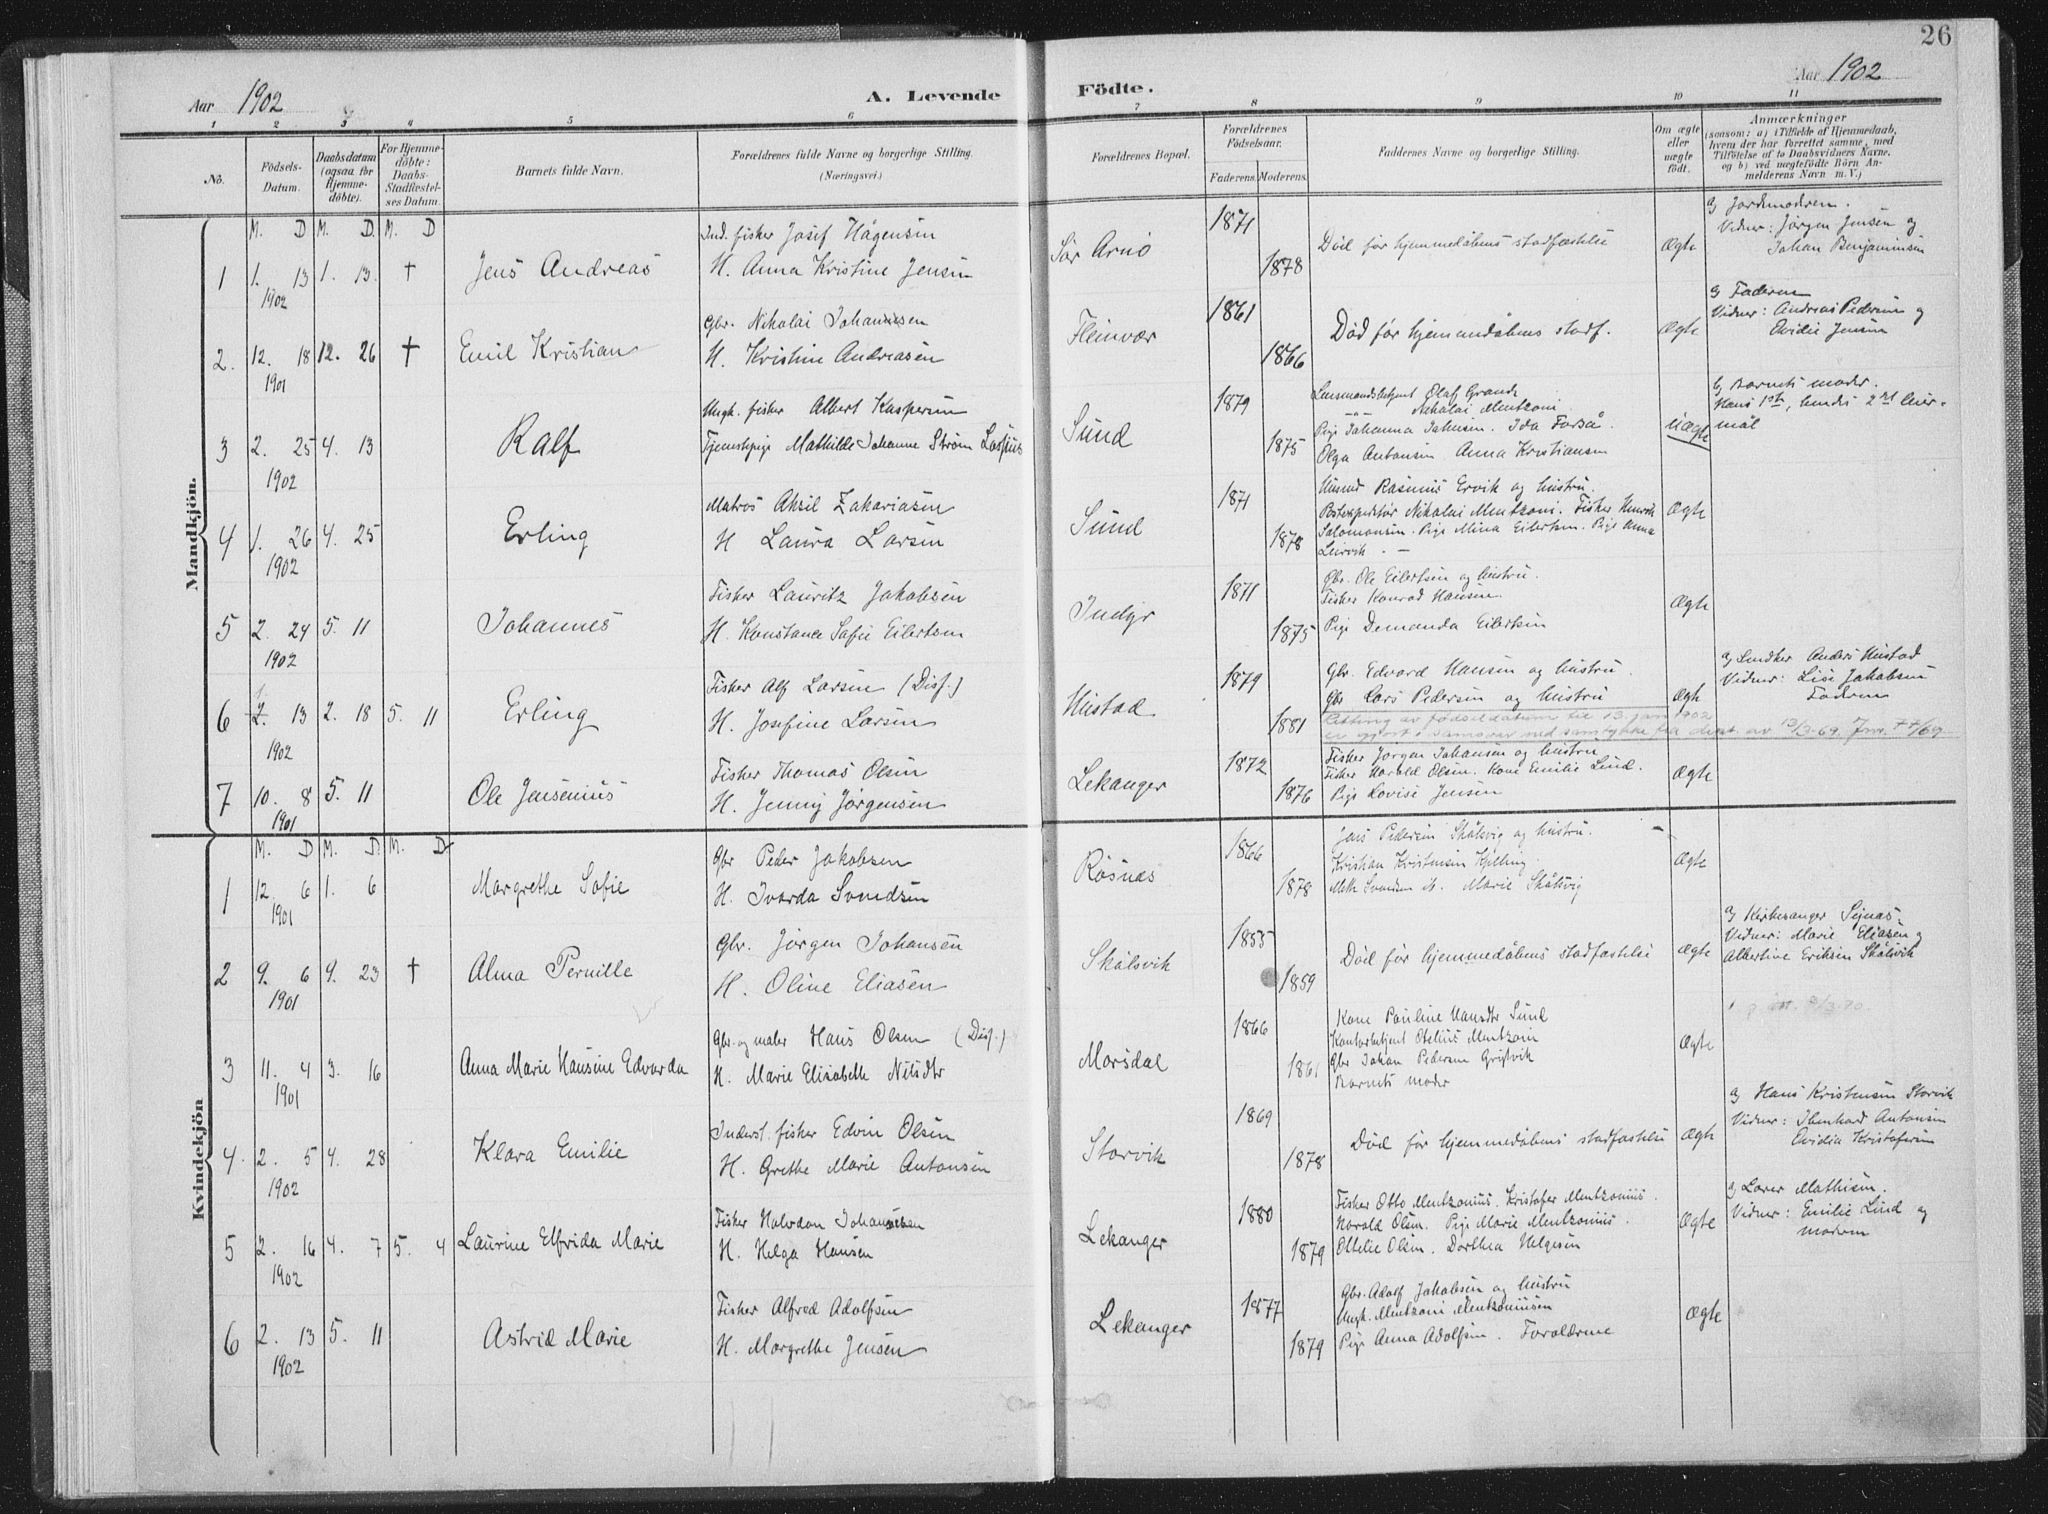 26
Aar 1902
A. Levende Födte.
Aar 1902
1 2 3 4 5 6 7 8 9 10 11
No.
Födsels-Datum.
Daabsdatum (ogsaa for Hjemme-döbte).
For Hjemme-döbte: Daabs-Stadfæstel-ses Datum.
Barnets fulde Navn.
Forældrenes fulde Navne og borgerlige Stilling.
(Næringsvei.)
Forældrenes Bopæl.
Forældrenes Födselsaar.
Faderens. Moderens.
Faddernes Navne og borgerlige Stilling.
Om ægte eller uægte födt.
Anmærkninger
(saasom: a) i Tilfælde af Hjemmedaab, hvem der har forrettet samme, med Tilföielse af to Daabsvidners Navne. og b) ved uægtefödte Börn An-melderens Navn m. V.)
Mandkjön.
M. D M. D. M. D
1 1. 13 1902 1. 13. † Jens Andreas
Ind. fisker Josif Hågensen
H. Anna Kristine Jensen
Sør Arnø 1871 1878
Död før hjemmedåbens stadfæstelse
Ægte
a) Jordmodren.
Vidner: Jørgen Jensen og
Johan Benjaminsen
2. 12. 18 1901 12. 26 † Emil Kristian
Gbr. Nikolai Johannesen
H. Kristine Andreasen
Fleinvær 1861 1866
Död før hjemmedåbens stadf.
Ægte
a) Faderen
Vidner: Andreas Pedersen og
Ovidie Jensen
3 2. 25 1902 4. 13 Ralf
Ungk. fisker Albert Kaspersen
Tjenestepige Mathilde Johanne Strøm Lassus
Sund 1879 1875
Lensmandsbetjent Olaf Grande
Nikolai Mentzoni
Pige Johanna Johnsen. Ida Forså.
Olga Antonsen Anna Kristiansen
Uægte
b) Barnets moder.
Hans 1ste, hendes 2det leier-
mål
4 1. 26 1902 4. 25 Erling
Matros Aksil Zakariasen
H Laura Larsen
Sund 1871 1878
Husmd Rasmus Ervik og hustru.
Postexpeditør Nikolai Mentzoni. Fisker Henrik
Salomonsen. Pige Mina Eilertsen. Pige Anna
Leirvik. —
Ægte
5 2. 24 1902 5. 11 Johannes
Fisker Lauritz Jakobsen
H. Konstance Sofie Eilertsen
Indyr 1871 1875
Gbr. Ole Eilertsen og hustru.
Fisker Konrad Hansen.
Pige Demanda Eilertsen
Ægte
6 2. 13 1902 2. 18 5. 11 Erling
Fisker Alf Larsen (Diss.)
H. Josefine Larsen
Hustad 1879 1881
Gbr. Edvard Hansen og hustru.
Gbr Lars Pedersen og hustru
Retting av fødselsdatum til 13. jan 1902
er gjort i samsvar med samtykke fra dept. av 13/3-69.
Ægte
a) Snedker Anders Hustad
Vidner: Lise Jakobsen
Fadren
7 10. 8 1901 5. 11 Ole Jensenius
Fisker Thomas Olsen
H. Jenny Jørgensen
Lekanger 1872 1876
Fisker Jørgen Johansen og hustru
Fisker Harald Olsen. Kone Emilie Lind.
Pige Lovise Jensen
Ægte
Kvindekjön
M. D M. D. M. D
1 12. 6 1901 1. 6 Margrethe Sofie
Gbr Peder Jakobsen
H. Ivarda Svendsen
Røsnes 1866 1878
Jens Pedersen Skålsvig og hustru.
Kristian Kristensen Kjelling.
Marie Skålsvig
Ægte
2 9. 6 1901 9. 23 † Alma Pernille
Gbr. Jørgen Johansen
H. Oline Eliasen
Skålsvik 1855 1859
Död før hjemmedåbens stadfæstelse
Ægte
a) Kirkesanger Sejnæs.
Vidner: Marie Eliasen og
Albertine Eriksen Skålsvik
3 11. 4 1901 3. 16 Anna Marie Hansine Edvarda
Gbr. og maler Hans Olsen (Diss.)
H. Marie Elisabeth Nilsdtr
Morsdal 1866 1861
Kone Pauline Hansdtr Sund
Kontorbetjent Otelius Mentzoni
Gbr Johan Pedersen Grytvik
Barnets moder
Ægte
4. 2. 5 1902 4. 28 Klara Emilie
Inderst. fisker Edvin Olsen
H. Grethe Marie Antonsen
Storvik 1869 1878
Död før hjemmedåbens stadfæstelse
Ægte
a) Hans Kristensen Storvik
Vidner: Ibenhard Antonsen
Ovidia Kristofersen
5 2. 16 1902 4. 7 5. 4 Laurine Elfrida Marie
Fisker Halvdan Johansen
H. Helga Hansen
Lekanger 1880 1879
Fisker Otto Mentzonius. Kristofer Mentzonius.
Harald Olsen. Pige Marie Mentzonius.
Ottelie Olsen. Dorthea Helgesen
Ægte
a) Lærer Mathisen.
Vidner: Emilie Lind og
modren
6 2. 13 1902 5. 11 Astrid Marie
Fisker Alfred Adolfsen
H. Margrethe Jensen
Lekanger 1877 1879
Gbr. Adolf Jakobsen og hustru
Ungk. Mentzoni Mentzoniusen
Pige Anna Adolfsen. Forældrene
Ægte